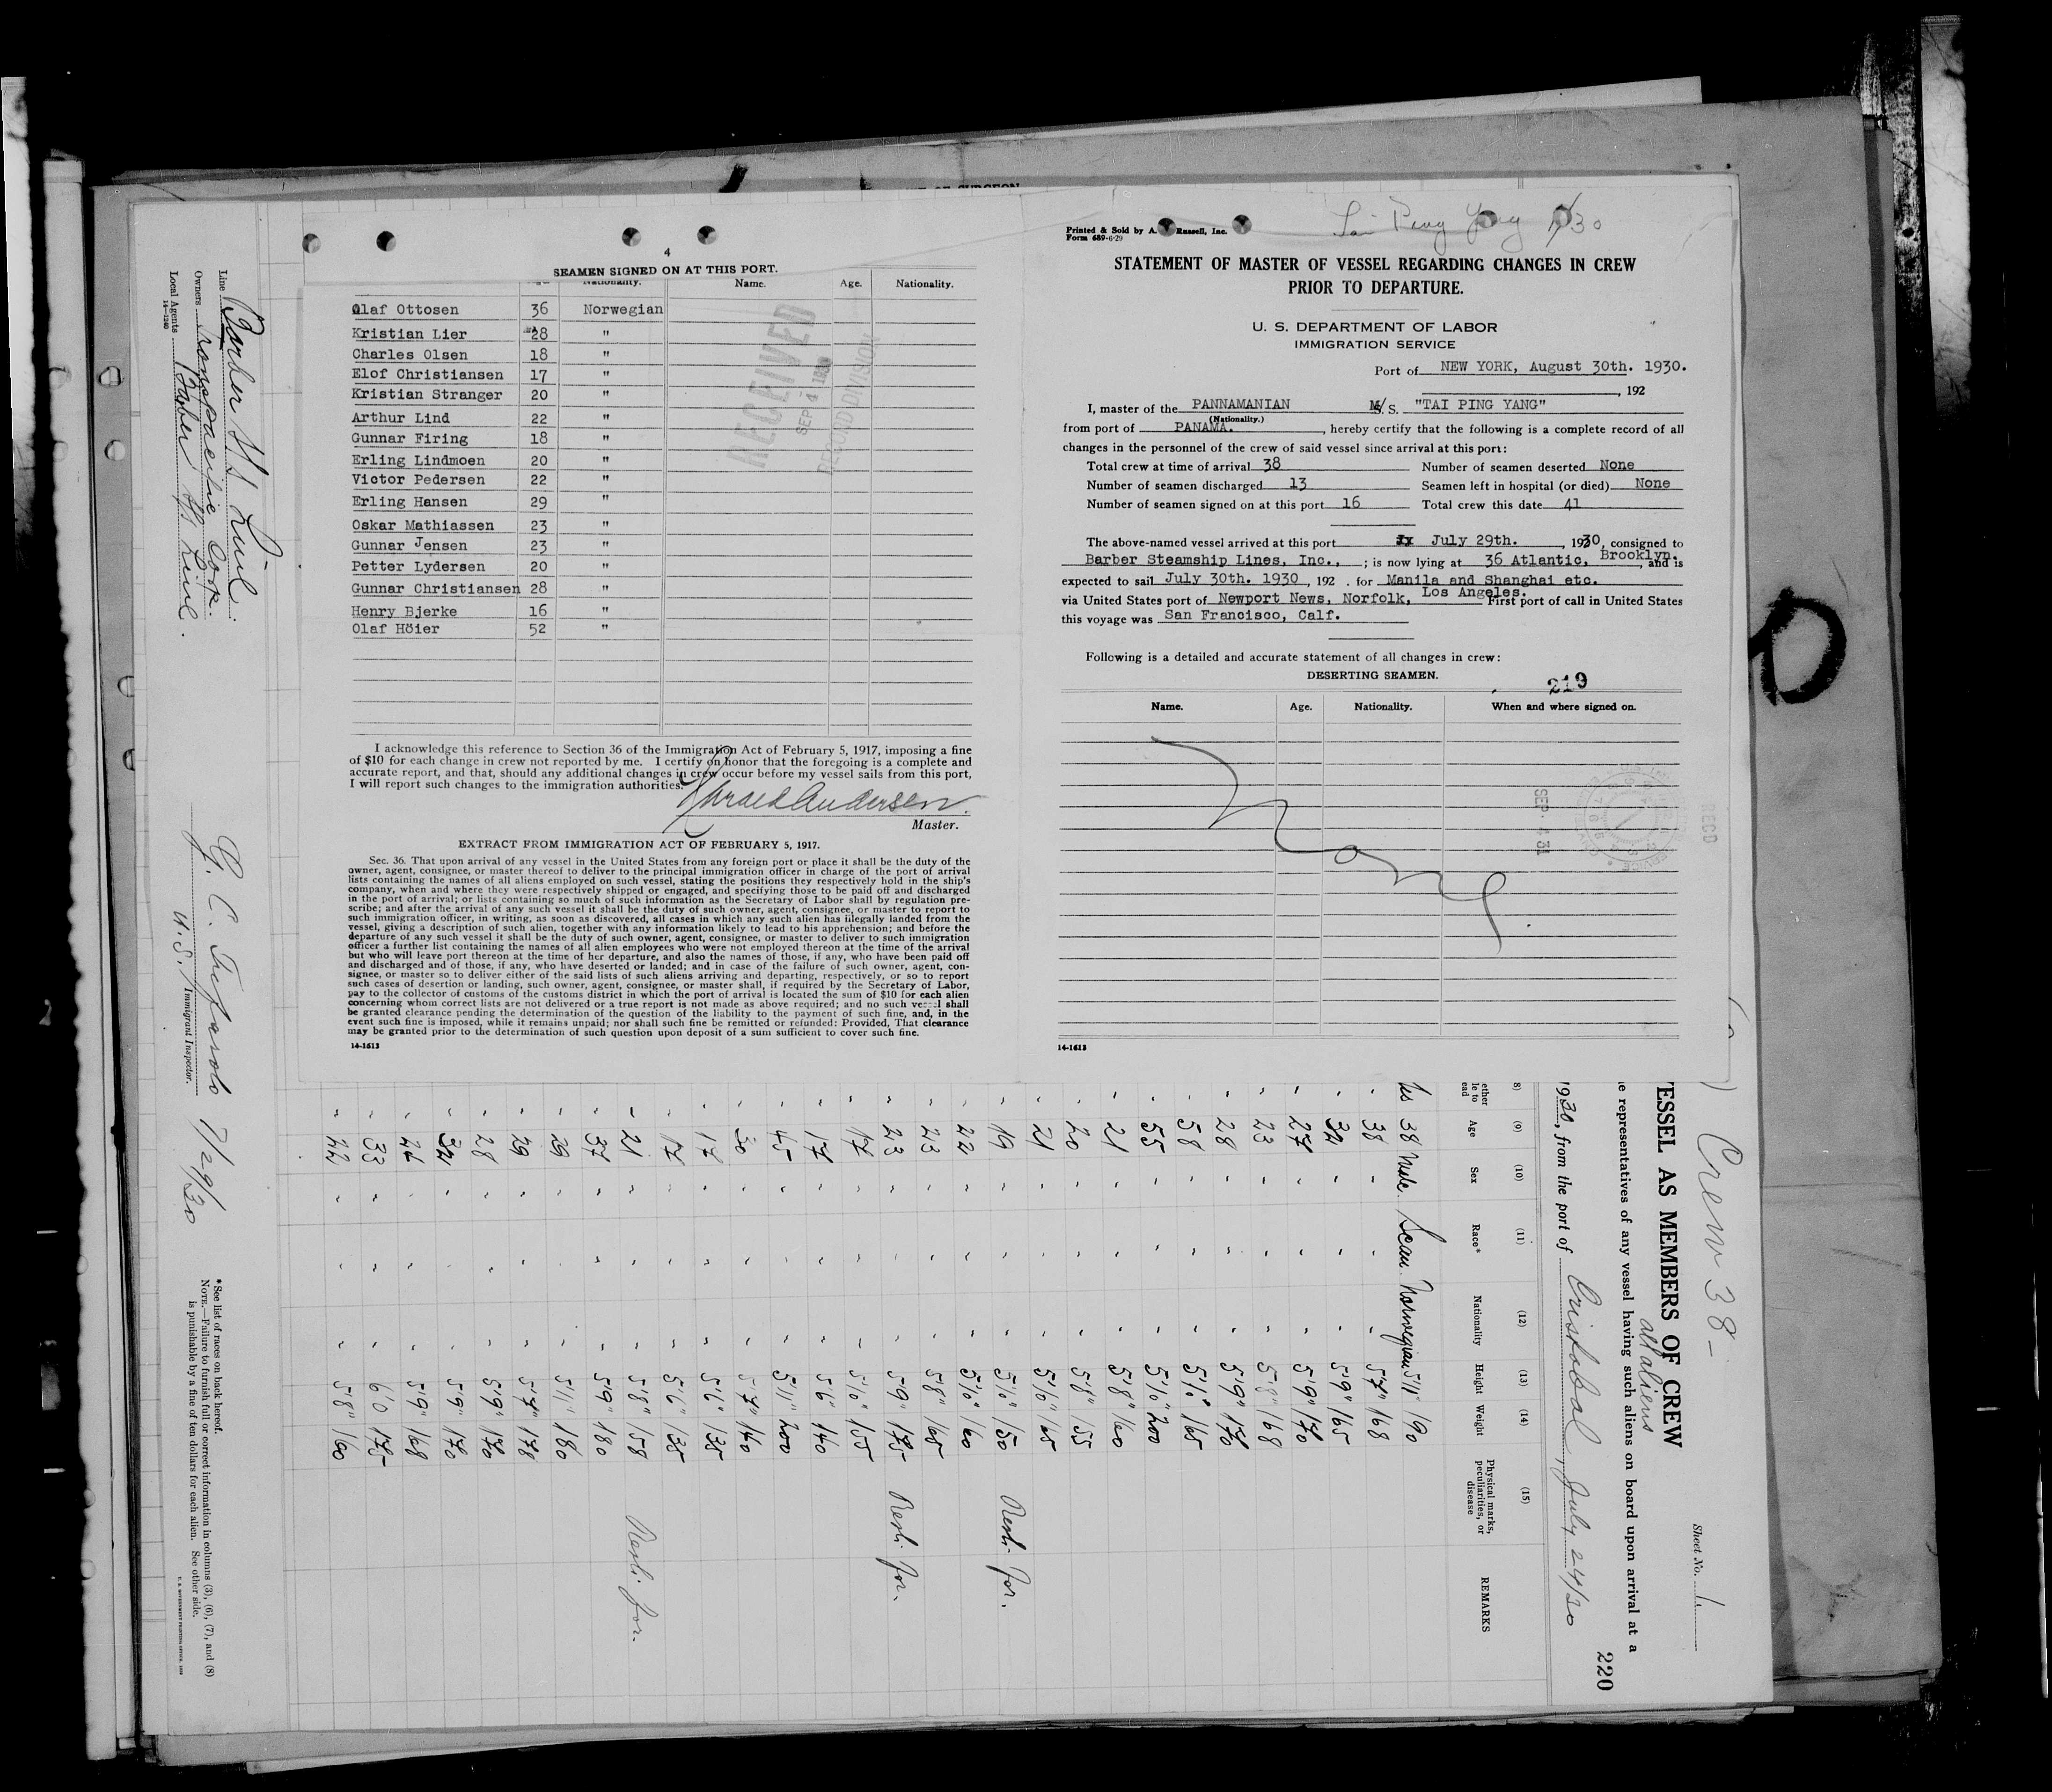 OF SURGEON
4
SEAMEN SIGNED ON AT THIS PORT.
Nationality. Name. Age. Nationality.
Olaf Ottosen 36 Norwegian
Kristian Lier 28 "
Charles Olsen 18 "
Elof Christiansen 17 "
Kristian Stranger 20 "
Arthur Lind 22 "
Gunnar Firing 18 "
Erling Lindmoen 20 "
Victor Pedersen 22 "
Erling Hansen 29 "
Oskar Mathiassen 23 "
Gunnar Jensen 23 "
Petter Lydersen 20 "
Gunnar Christiansen 28 "
Henry Bjerke 16 "
Olaf Höier 52 "
RECEIVED
SEP 4 1930
RECORD DIVISION
I acknowledge this reference to Section 36 of the Immigration Act of February 5, 1917, imposing a fine
of $10 for each change in crew not reported by me. I certify on honor that the foregoing is a complete and
accurate report, and that, should any additional changes in crew occur before my vessel sails from this port,
I will report such changes to the immigration authorities.
Harald Andersen
Master.
EXTRACT FROM IMMIGRATION ACT OF FEBRUARY 5, 1917.
Sec. 36. That upon arrival of any vessel in the United States from any foreign port or place it shall be the duty of the
owner, agent, consignee, or master thereof to deliver to the principal immigration officer in charge of the port of arrival
lists containing the names of all aliens employed on such vessel, stating the positions they respectively hold in the ship's
company, when and where they were respectively shipped or engaged, and specifying those to be paid off and discharged
in the port of arrival; or lists containing so much of such information as the Secretary of Labor shall by regulation pre-
scribe; and after the arrival of any such vessel it shall be the duty of such owner, agent, consignee, or master to report to
such immigration officer, in writing, as soon as discovered, all cases in which any such alien has illegally landed from the
vessel, giving a description of such alien, together with any information likely to lead to his apprehension; and before the
departure of any such vessel it shall be the duty of such owner, agent, consignee, or master to deliver to such immigration
officer a further list containing the names of all alien employees who were not employed thereon at the time of the arrival
but who will leave port thereon at the time of her departure, and also the names of those, if any, who have been paid off
and discharged and of those, if any, who have deserted or landed; and in case of the failure of such owner, agent, con-
signee, or master so to deliver either of the said lists of such aliens arriving and departing, respectively, or so to report
such cases of desertion or landing, such owner, agent, consignee, or master shall, if required by the Secretary of Labor,
pay to the collector of customs of the customs district in which the port of arrival is located the sum of $10 for each alien
concerning whom correct lists are not delivered or a true report is not made as above required; and no such vessel shall
be granted clearance pending the determination of the question of the liability to the payment of such fine, and, in the
event such fine is imposed, while it remains unpaid; nor shall such fine be remitted or refunded: Provided, That clearance
may be granted prior to the determination of such question upon deposit of a sum sufficient to cover such fine.
14-1613
Tai Ping Yang /30
Printed & Sold by A. Russell, Inc.
Form 689-6-29
STATEMENT OF MASTER OF VESSEL REGARDING CHANGES IN CREW
PRIOR TO DEPARTURE.
U. S. DEPARTMENT OF LABOR
IMMIGRATION SERVICE
Port of NEW YORK, August 30th. 1930.
, 192
I, master of the PANNAMANIAN M/S. "TAI PING YANG"
(Nationality.)
from port of PANAMA. , hereby certify that the following is a complete record of all
changes in the personnel of the crew of said vessel since arrival at this port:
Total crew at time of arrival 38 Number of seamen deserted None
Number of seamen discharged 13 Seamen left in hospital (or died) None
Number of seamen signed on at this port 16 Total crew this date 41
The above-named vessel arrived at this port July 29th. , 1930, consigned to
Barber Steamship Lines, Inc., ; is now lying at 36 Atlantic, Brooklyn. , and is
expected to sail July 30th. 1930 , 192 . for Manila and Shanghai etc.
via United States port of Newport News, Norfolk, Los Angeles. First port of call in United States
this voyage was San Francisco, Calf.
Following is a detailed and accurate statement of all changes in crew:
DESERTING SEAMEN.
219
Name. Age. Nationality. When and where signed on.
None
SEP.
RECD
14-1613
Crew 38-
Sheet No. 1.
ESSEL AS MEMBERS OF CREW
all aliens
e representatives of any vessel having such aliens on board upon arrival at a
220
1930, from the port of Cristobal, July 24/30
(9) (10) (11) (12) (13) (14) (15)
Age Sex Race* Nationality Height Weight Physical marks, peculiarities, or disease REMARKS
38 Male Scan. Norwegian 5'11" 190
38 " " " 5'7" 168
32 " " " 5'9" 165
27 " " " 5'9" 170
23 " " " 5'8" 168
28 " " " 5'9" 170
58 " " " 5'10" 165
55 " " " 5'10" 200
21 " " " 5'8" 160
20 " " " 5'8" 155
21 " " " 5'10" 165
19 " " " 5'10" 150
22 " " " 5'10" 160
23 " " " 5'8" 165
23 " " " 5'9" 175
17 " " " 5'10" 155
17 " " " 5'6" 140
45 " " " 5'11" 200
30 " " " 5'7" 140
17 " " " 5'6" 135
17 " " " 5'6" 135
21 " " " 5'8" 158
37 " " " 5'9" 180
29 " " " 5'11" 180
29 " " " 5'7" 178
28 " " " 5'9" 170
" " " 5'9" 170
" " " 5'9" 168
33 " " " 6'0 175
" " " 5'8" 160
Line Barber SS Line.
Owners Transpacific Corp.
Local Agents Barber SS Line.
14-1240
7/29/30
U.S. Immigrant Inspector.
*See list of races on back hereof.
NOTE.—Failure to furnish full or correct information in columns (3), (6), (7), and (8)
is punishable by a fine of ten dollars for each alien. See other side.
U. S. GOVERNMENT PRINTING OFFICE